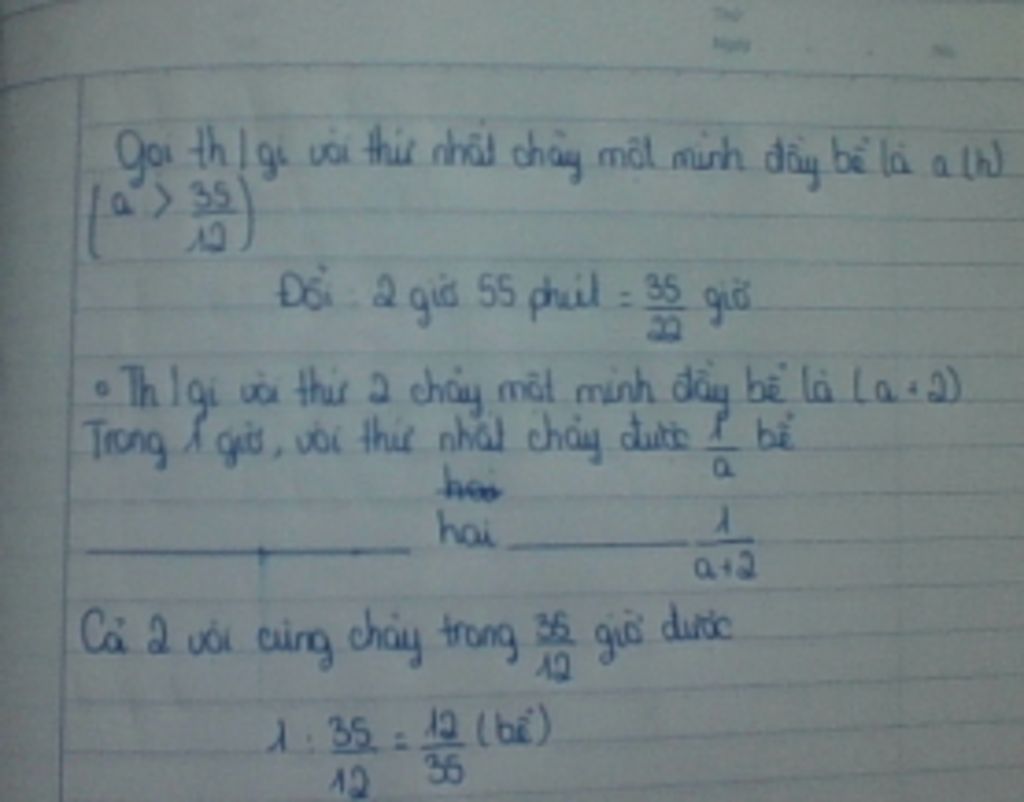 Thứ
Ngày No.
Gọi th/gi vòi thứ nhất chảy một mình đầy bể là a (h)
(a > 35/12)
Đổi : 2 giờ 55 phút = 35/22 giờ
• Th/gi vòi thứ 2 chảy một mình đầy bể là (a + 2)
Trong 1 giờ, vòi thứ nhất chảy được 1/a bể
hai 1/a+2
Cả 2 vòi cùng chảy trong 35/12 giờ được
1 : 35/12 = 12/35 (bể)